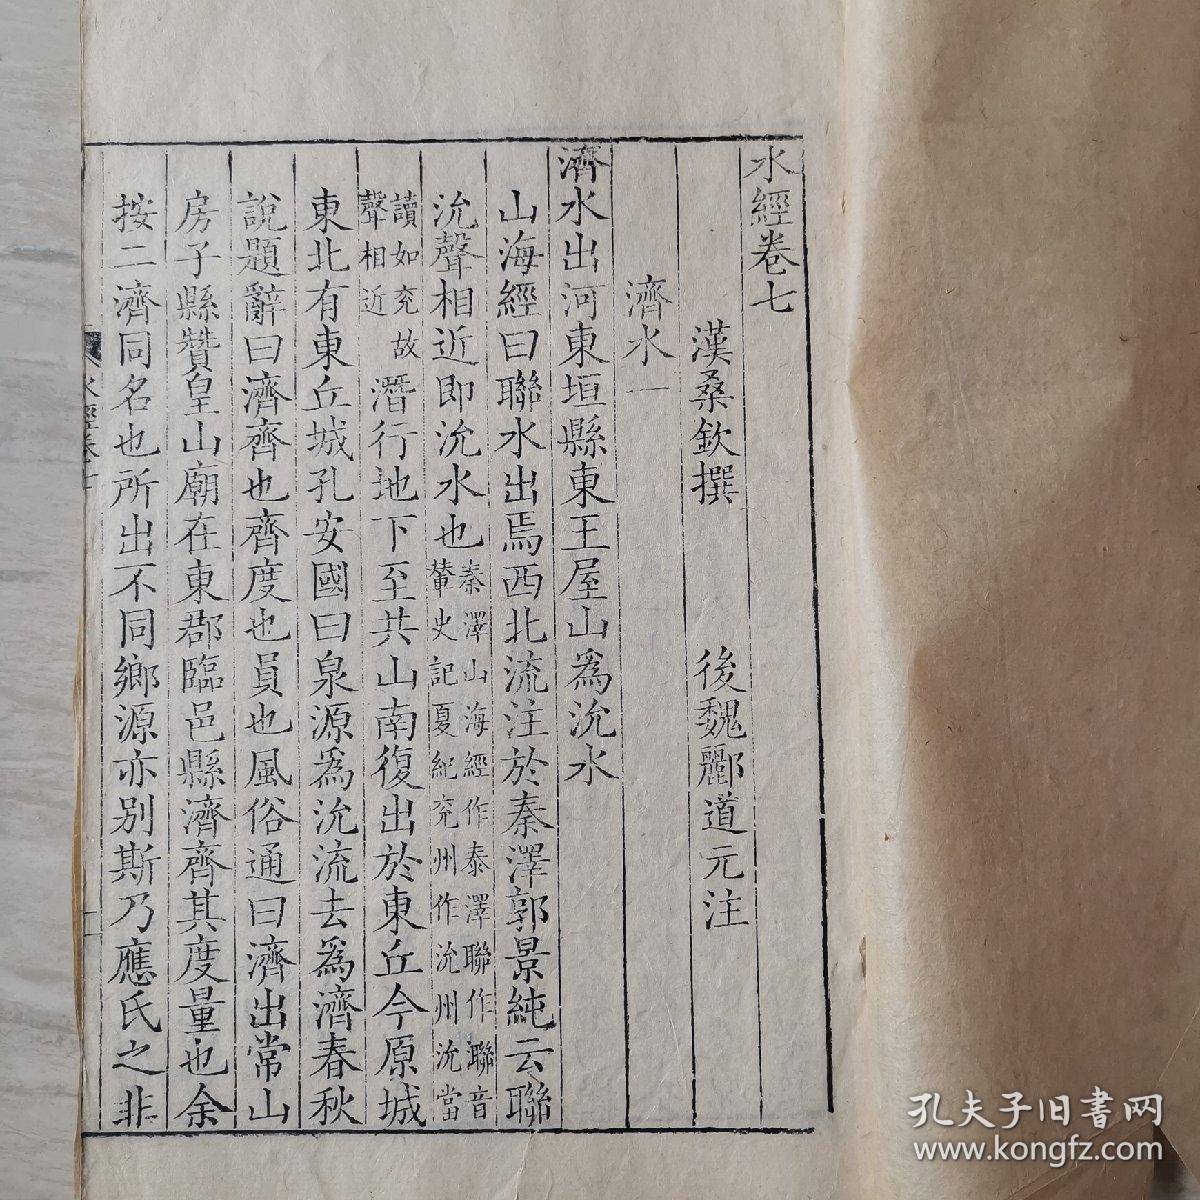 水經卷七
漢桑欽撰 後魏酈道元注
濟水一
濟水出河東垣縣東王屋山爲沇水
山海經曰聯水出焉西北流注於秦澤郭景純云聯
沇聲相近即沇水也秦澤山海經作泰澤聯作聯音輦史記夏紀兖州作沇州沇當
讀如兖故聲相近潛行地下至共山南復出於東丘今原城
東北有東丘城孔安國曰泉源爲沇流去爲濟春秋
說題辭曰濟齊也齊度也員也風俗通曰濟出常山
房子縣贊皇山廟在東郡臨邑縣濟齊其度量也余
按二濟同名也所出不同鄉源亦别斯乃應氏之非
水經卷七
一
孔夫子旧書网
www.kongfz.com